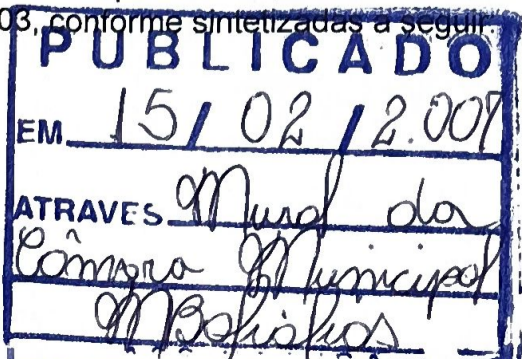 03, conforme sintetizadas a seguir:
PUBLICADO
EM 15/ 02 /2.007
ATRAVES Mural da
Câmara Municipal